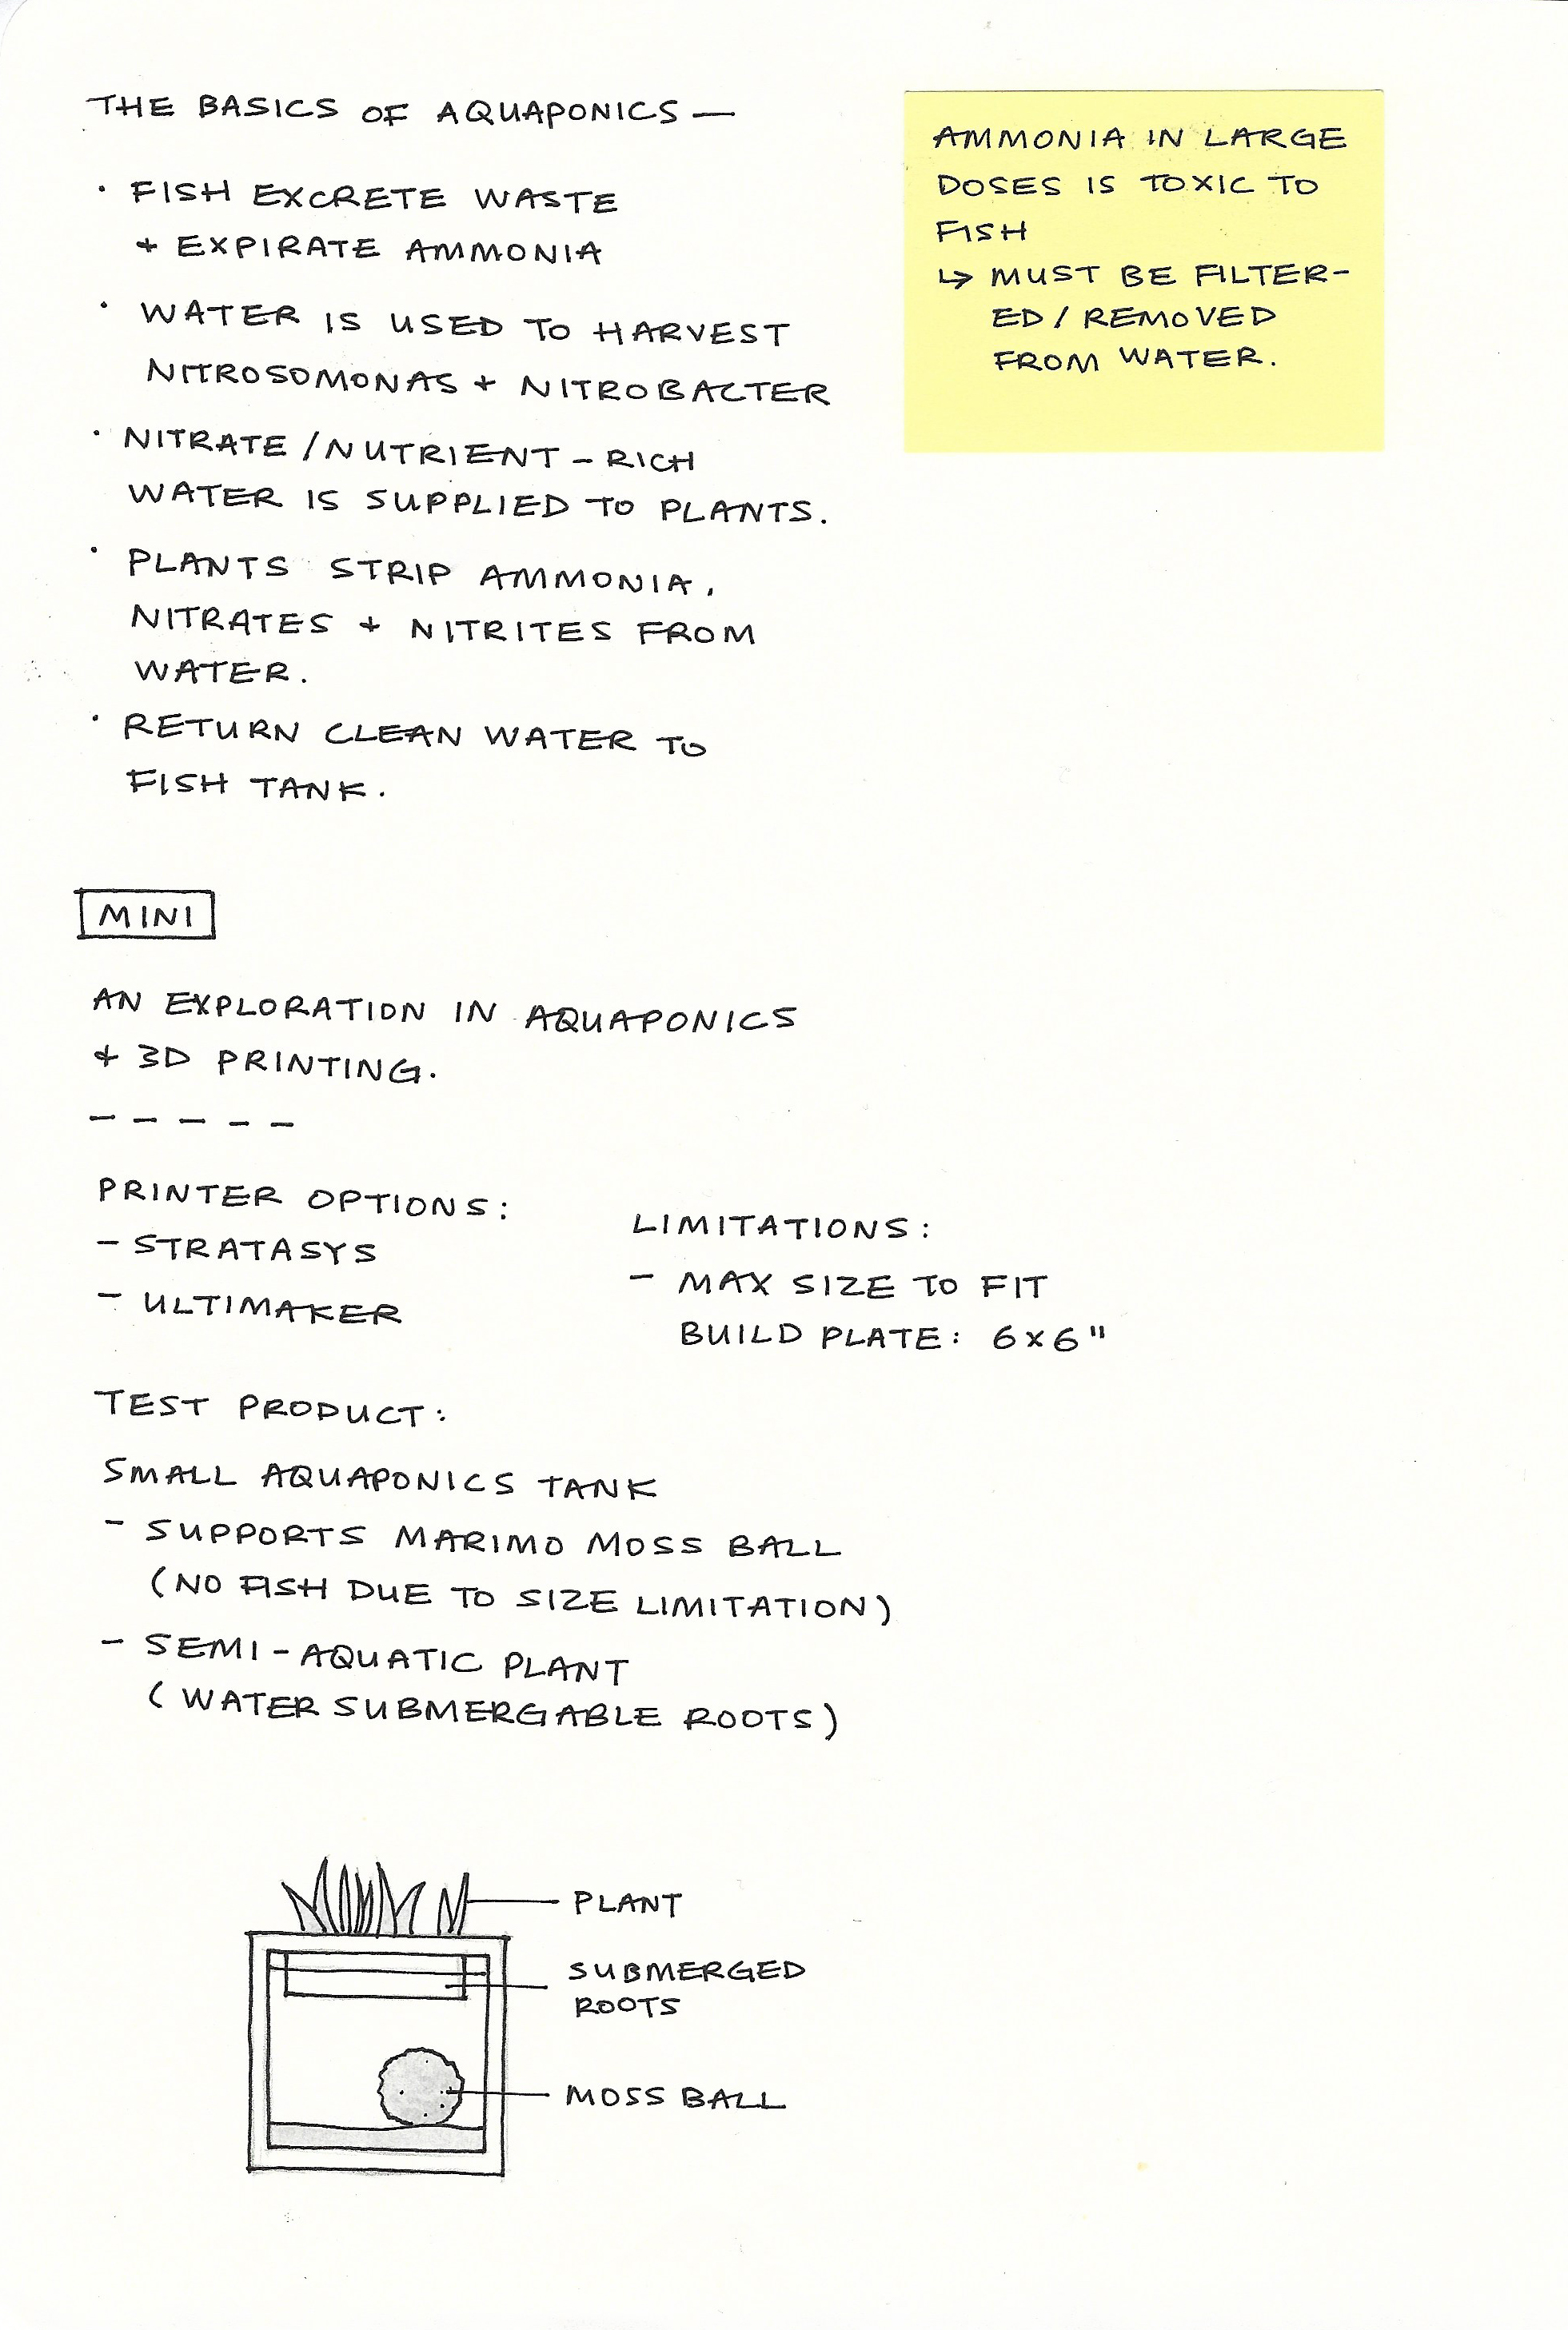 THE BASICS OF AQUAPONICS —
· FISH EXCRETE WASTE
+ EXPIRATE AMMONIA
· WATER IS USED TO HARVEST
NITROSOMONAS + NITROBACTER
· NITRATE / NUTRIENT - RICH
WATER IS SUPPLIED TO PLANTS.
· PLANTS STRIP AMMONIA,
NITRATES + NITRITES FROM
WATER.
· RETURN CLEAN WATER TO
FISH TANK.
AMMONIA IN LARGE
DOSES IS TOXIC TO
FISH
↳ MUST BE FILTER-
ED / REMOVED
FROM WATER.
MINI
AN EXPLORATION IN AQUAPONICS
+ 3D PRINTING.
– – – – –
PRINTER OPTIONS:
– STRATASYS
– ULTIMAKER
LIMITATIONS:
– MAX SIZE TO FIT
BUILD PLATE: 6 x 6"
TEST PRODUCT:
SMALL AQUAPONICS TANK
– SUPPORTS MARIMO MOSS BALL
(NO FISH DUE TO SIZE LIMITATION)
– SEMI - AQUATIC PLANT
(WATER SUBMERGABLE ROOTS)
PLANT
SUBMERGED
ROOTS
MOSS BALL